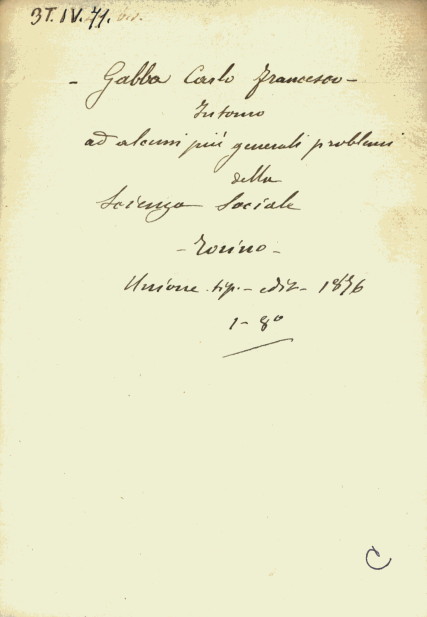 3T. IV. 71.
- Gabba Carlo Francesco -
Intorno
ad alcuni più generali problemi
della
Scienza Sociale
- Torino -
Unione tip. - edit - 1876
1 - 8°
C